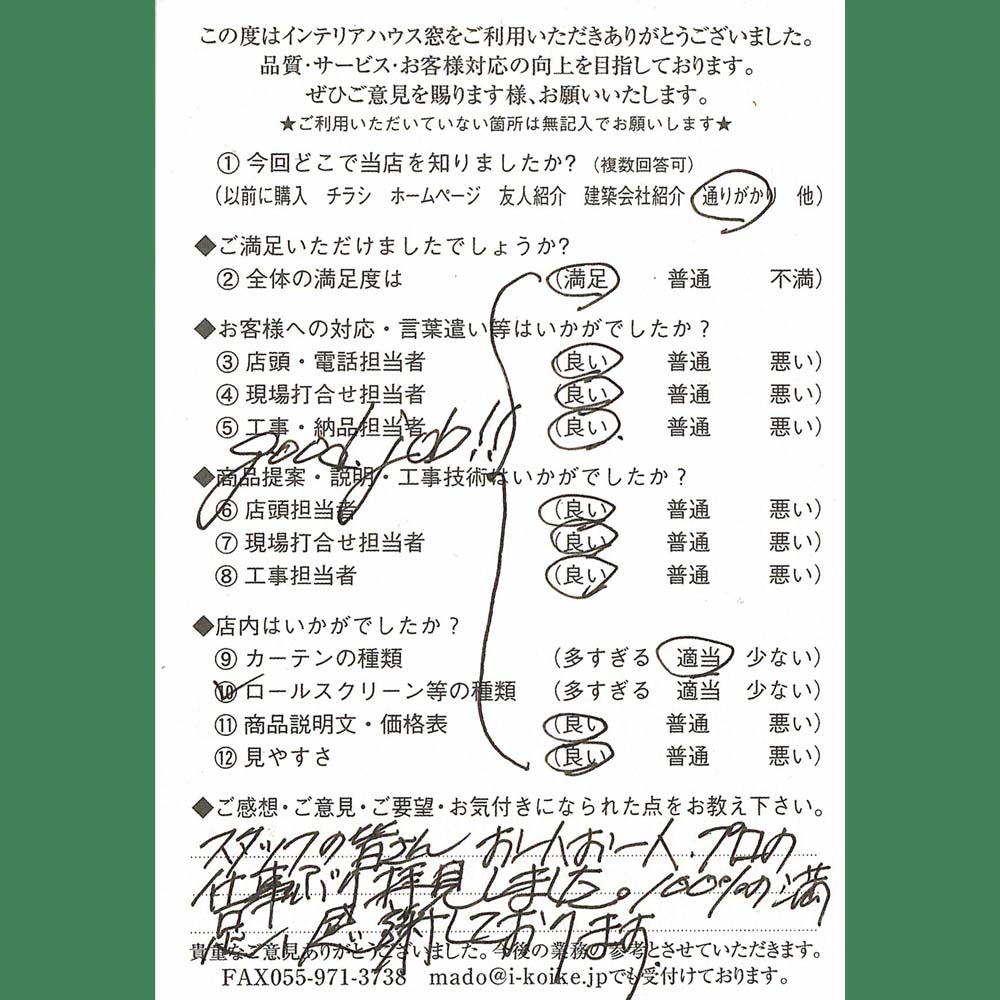 この度はインテリアハウス窓をご利用いただきありがとうございました。
品質・サービス・お客様対応の向上を目指しております。
ぜひご意見を賜ります様、お願いいたします。
★ご利用いただいていない箇所は無記入でお願いします★
①今回どこで当店を知りましたか?（複数回答可）
（以前に購入 チラシ ホームページ 友人紹介 建築会社紹介 通りがかり 他）
◆ご満足いただけましたでしょうか?
②全体の満足度は （満足 普通 不満）
◆お客様への対応・言葉遣い等はいかがでしたか？
③店頭・電話担当者 （良い 普通 悪い）
④現場打合せ担当者 （良い 普通 悪い）
⑤工事・納品担当者 （良い 普通 悪い）
good job!!
◆商品提案・説明・工事技術はいかがでしたか？
⑥店頭担当者 （良い 普通 悪い）
⑦現場打合せ担当者 （良い 普通 悪い）
⑧工事担当者 （良い 普通 悪い）
◆店内はいかがでしたか？
⑨カーテンの種類 （多すぎる 適当 少ない）
⑩ロールスクリーン等の種類 （多すぎる 適当 少ない）
⑪商品説明文・価格表 （良い 普通 悪い）
⑫見やすさ （良い 普通 悪い）
◆ご感想・ご意見・ご要望・お気付きになられた点をお教え下さい。
スタッフの皆さん お一人お一人、プロの
仕事ぶり拝見しました。100%の満
足で、感謝しております。
貴重なご意見ありがとうございました。今後の業務の参考とさせていただきます。
FAX055-971-3738 mado@i-koike.jpでも受付けております。